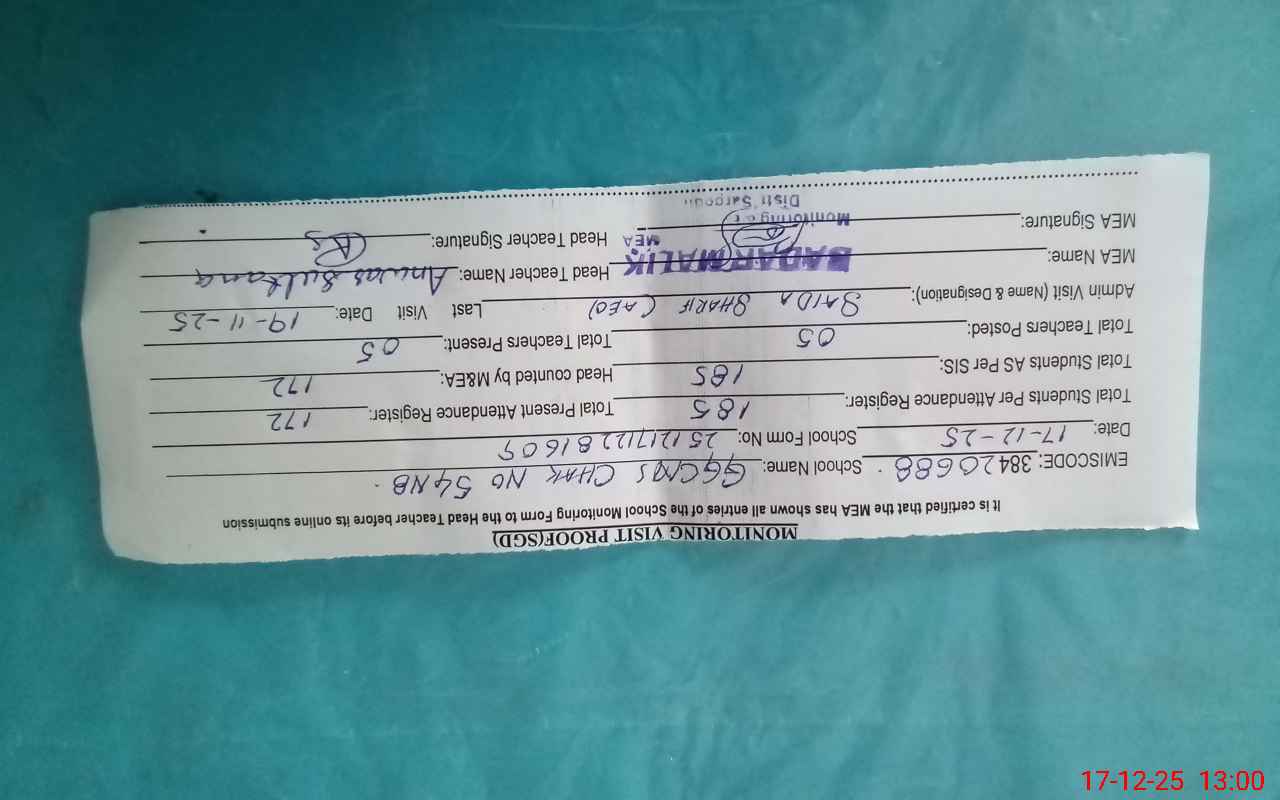 MONITORING VISIT PROOF(SGD)
It is certified that the MEA has shown all entries of the School Monitoring Form to the Head Teacher before its online submission
EMISCODE: 38420688 School Name: GGCMS CHAK NO 54NB
Date: 17-12-25 School Form No: 251217112281609
Total Students Per Attendance Register: 185 Total Present Attendance Register: 172
Total Students AS Per SIS: 185 Head counted by M&EA: 172
Total Teachers Posted: 05 Total Teachers Present: 05
Admin Visit (Name & Designation): SAIDA SHARIF (AEO) Last Visit Date: 19-11-25
MEA Name: BADAR MALIK Head Teacher Name: Anwar Sultana
MEA
MEA Signature: Monitoring Head Teacher Signature:
Distt Sargodha
17-12-25 13:00